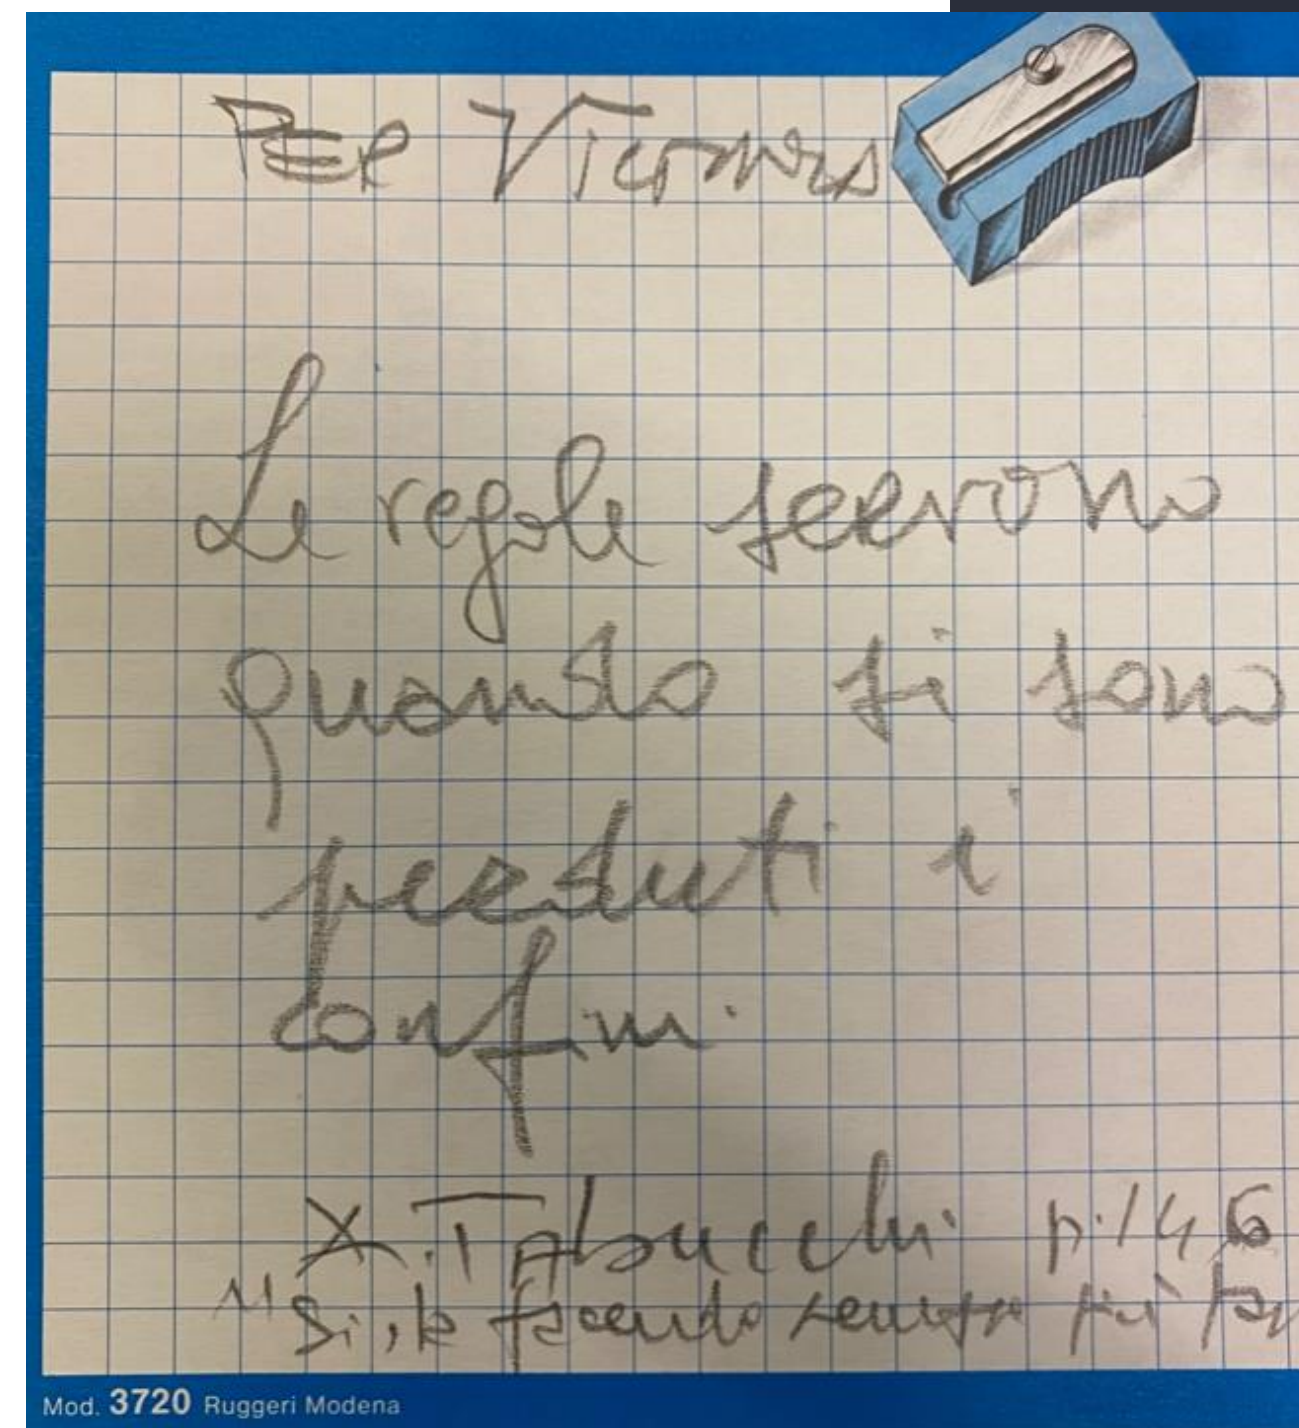 PER
Le regole servono
quando si sono
perduti i
confini.
X. Tabucchi p. 146
"Si, facendo sempre più
Mod. 3720 Ruggeri Modena